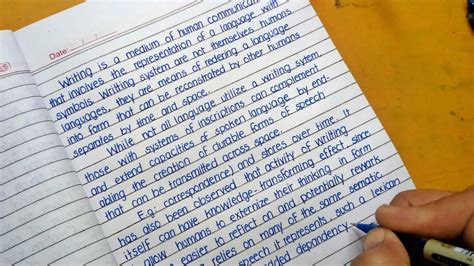 Date:
Writing is a medium of human communication
that involves the representation of a language with
symbols. Writing system are not themselves humans
languages, they are means of redering a language
into form that can be reconstrated by other humans
separates by time and space.
While not all language utilize a writing system,
those with systems of inscriptions can complement
and extend capacities of spoken language by end-
abling the creation of durable forms of speech
that can be transmitted across space.
E.g: correspondence) and stores over time, it
has also been observed that activity of writting
itself can have knowledge-transforming effect, since
allow humans to externize their thinking in form
easier to reflect on and potentially rework.
relies on many of the same sematic
speech it represents, such a lexican
added dependancy